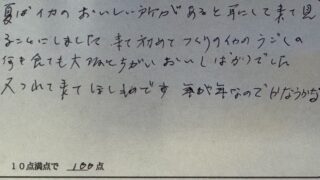 夏はイカのおいしい所があると耳にして来て見
ることにしました 来て初めてつくりのイカのうごくの
何を食ても大阪とちがいおいしばかりでした
又つれて来てほしいのです 年が年なのでかなうかな
10点満点で 100点